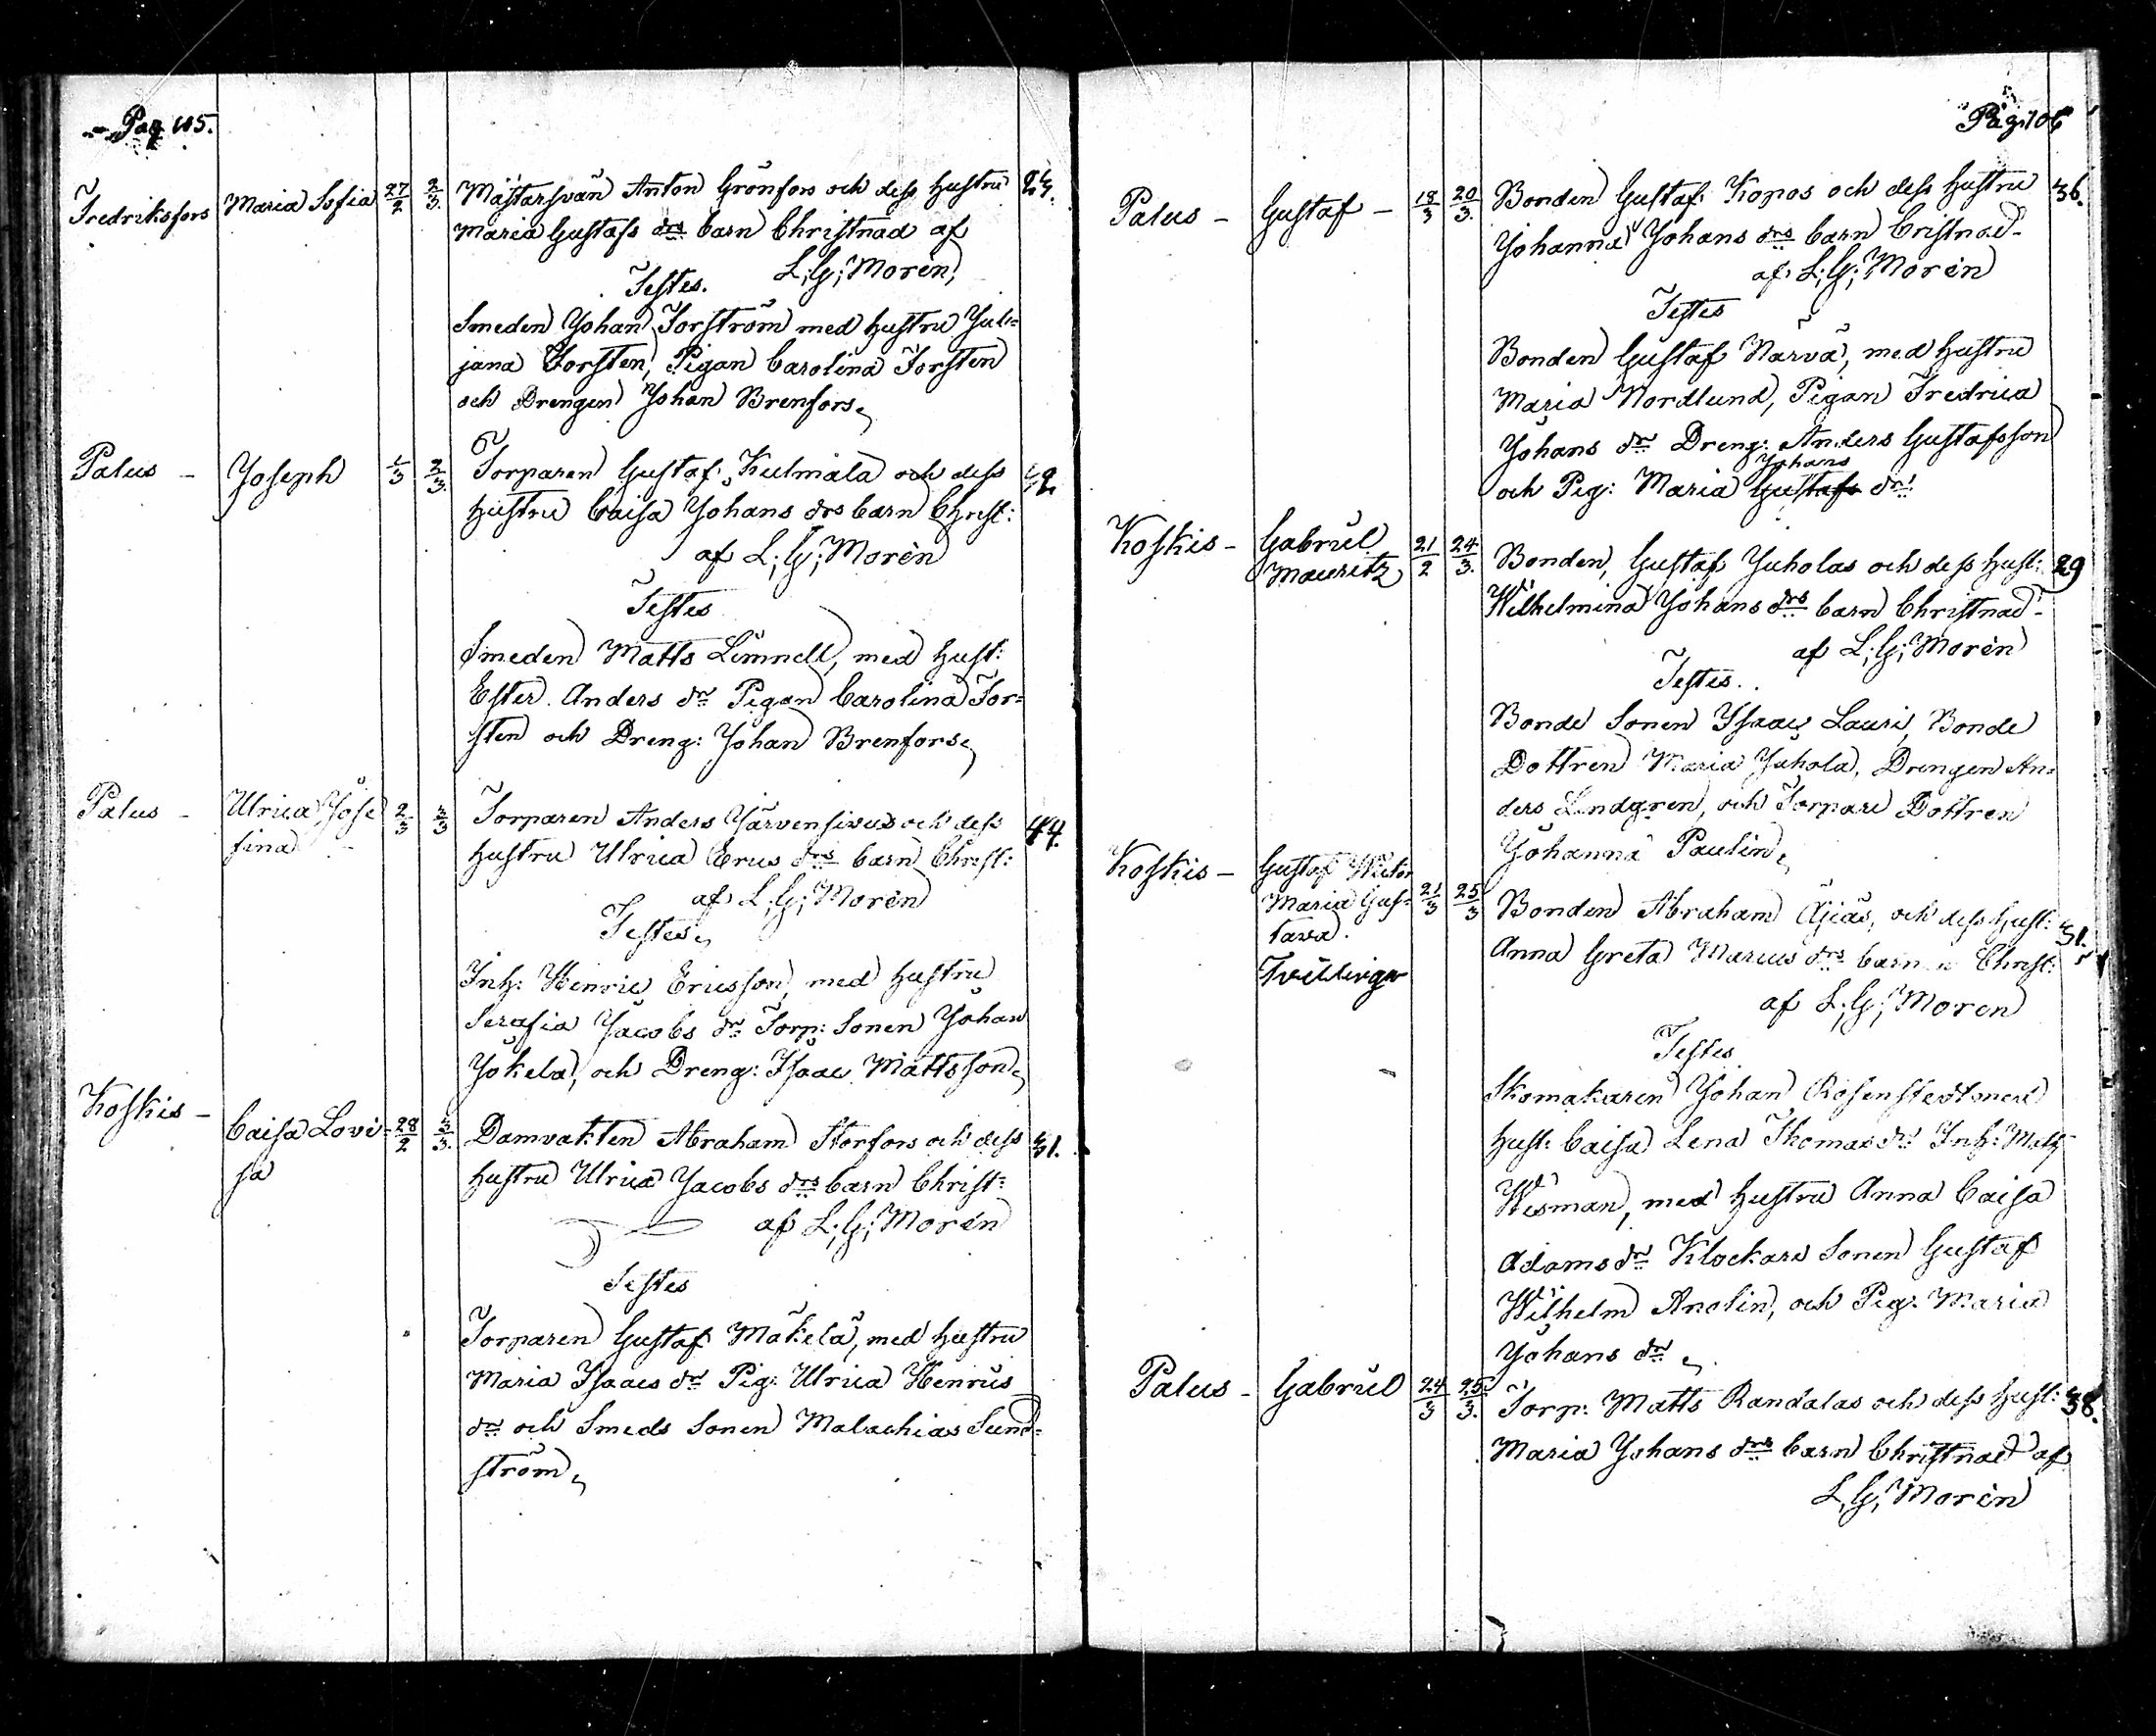 Pag 105.
Fredriksfors Maria Sofia 27/2 2/3. Mästarsvän Anton Grönfors och dess Hustru 23.
Maria Gustafs drs barn Christnad af
L; G; Morén,
Testes.
Smeden Johan Forström med Hustru Jul=
jana Forsten, Pigan Carolina Forsten
och Drengen Johan Brenfors.
Palus - Joseph 1/3 2/3. Torparen Gustaf Kulmala och dess 42.
Hustru Caisa Johans drs barn Christ:
af L; G; Morén
Testes
Smeden Matts Limnell, med Hust:
Ester Anders dr Pigan Carolina For=
sten och Dreng: Johan Brenfors.
Palus - Ulrica Jose 2/3 3/3 Torparen Anders Järvensivus och dess 44.
fina
Hustru Ulrica Erics drs barn Christ:
af L; G; Morén
Testes.
Inh: Henric Ericsson, med Hustru
Serafia Jacobs dr Torp: Sonen Johan
Jokela, och Dreng: Isaac Mattsson.
Koskis - Caisa Lovi= 28/2 3/3. Damvakten Abraham Storfors och dess 31.
sa
Hustru Ulrica Jacobs drs barn Christ:
af L; G; Morén
Testes
Torparen Gustaf Mäkelä, med Hustru
Maria Isaacs dr Pig: Ulrica Henrics
dr och Smeds Sonen Malachias Sund=
ström.
Pag. 106
Palus - Gustaf - 18/3 20/3. Bonden Gustaf Kopos och dess Hustru 36.
Johanna Johans drs barn Cristnad
af L; G; Morén
Testes
Bonden Gustaf Närvä, med Hustru
Maria Nordlund, Pigan Fredrica
Johans dr Dreng: Anders Gustafsson
Johans
och Pig: Maria Gustafs dr
Koskis - Gabriel 21/2 24/3. Bonden, Gustaf Juholas och dess Hust: 29
Mauritz
Wilhelmina Johans drs barn Christnad
af L; G; Morén
Testes.
Bonde Sonen Isaac Lauri, Bonde
Dottren Maria Juhola, Drengen An=
ders Lindgren, och Torpare Dottren
Johanna Paulin.
Koskis - Gustaf Victor
Maria Gus= 21/3 25/3 Bonden Abraham Äjiäs, och dess Hust: 31.
tava.
Anna Greta Marcus drs barn Christ:
Tvillingar
af L; G; Moren
Testes
Skomakaren Johan Rosenstedt med
Hust: Caisa Lena Thomas dr Inh: Mats
Wisman, med Hustru Anna Caisa
Adams dr Klockare Sonen Gustaf
Wilhelm Anolin, och Pig: Maria
Johans dr.
Palus - Gabriel 24/3 25/3. Torp: Matts Randalas och dess Hust: 38.
Maria Johans drs barn Christnad af
L, G, Morén